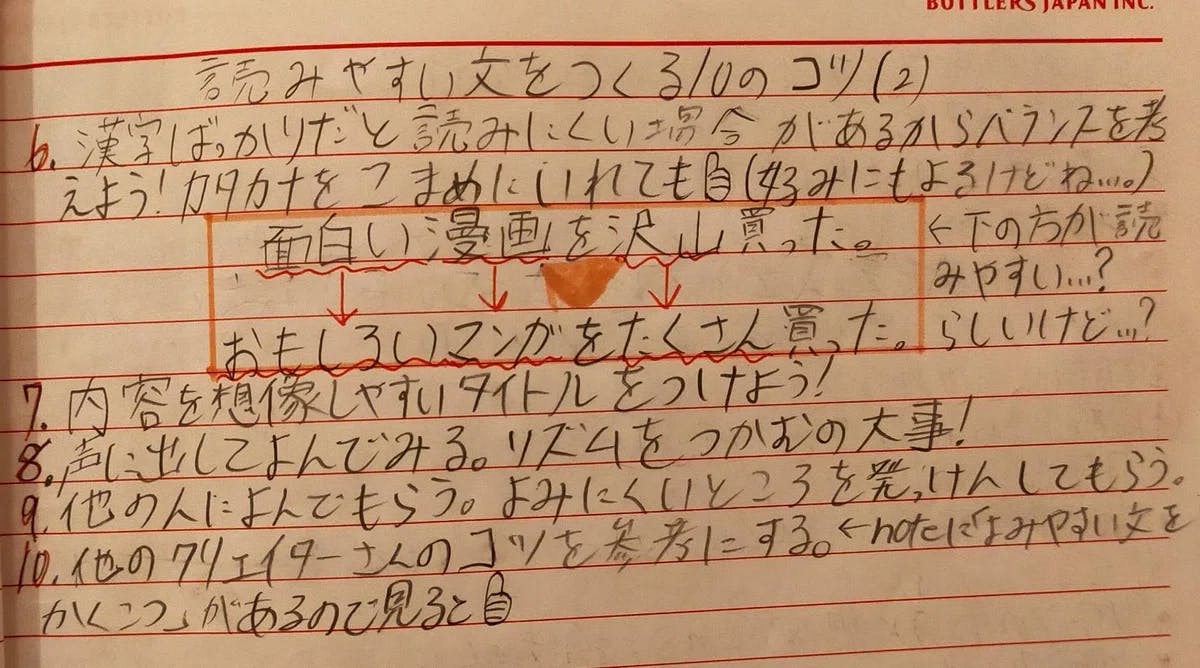 BOTTLERS JAPAN INC.
読みやすい文をつくる10のコツ(2)
6. 漢字ばっかりだと読みにくい場合があるからバランスを考
えよう!カタカナをこまめにいれても👍(好みにもよるけどね…。)
面白い漫画を沢山買った。
←下の方が読
みやすい…?
らしいけど…?
おもしろいマンガをたくさん買った。
7. 内容を想像しやすいタイトルをつけよう!
8. 声に出してよんでみる。リズムをつかむの大事!
9. 他の人によんでもらう。よみにくいところを発っけんしてもらう。
10. 他のクリエイターさんのコツを参考にする。←noteに「よみやすい文を
かくこつ」があるので見ると👍